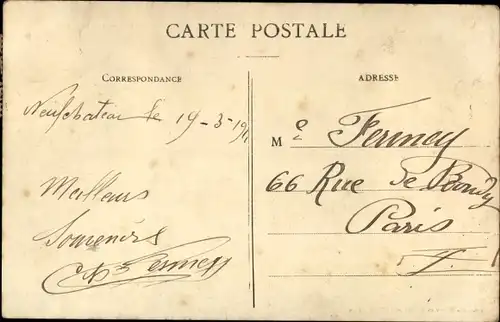 CARTE POSTALE
CORRESPONDANCE
ADRESSE
Neufchateau le 19-3-191
Meilleurs
Souvenirs
Ferney
Me Ferney
66 Rue de Bondy
Paris